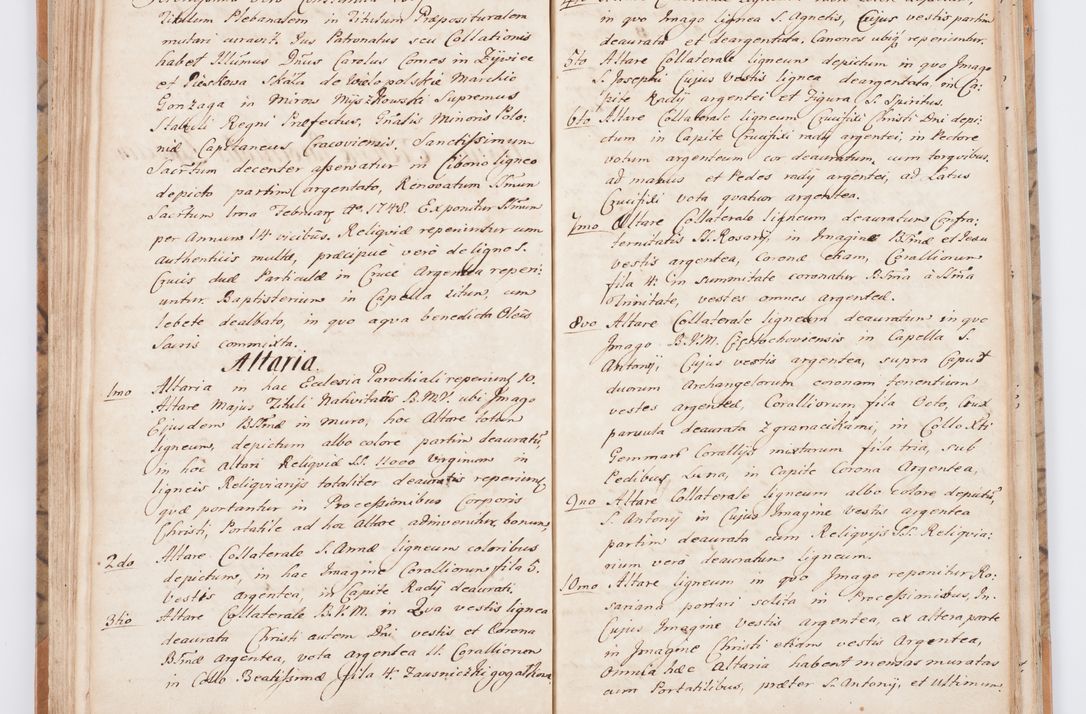 Titulum Plebanalem in Titulum Præposituralem
mutari curavit. Jus Patronatus seu Collationis
habet Illmus Dnus Carolus Comes in Zÿwiec
et Pieskowa Skała de Wielopolskie Marchio
Gonzaga in Mirow Myszkowski Supremus
Stabuli Regni Præfectus, Gnalis Minoris Polo:
niæ Capitaneus Cracoviensis. Sanctissimum
Sacrtum decenter asservatur in Ciborio ligneo
depicto partim argentato, Renovatum SSmum
Sacrtum 1ma Februarÿ Ao 1748. Exponitur SSmum
per Annum 14 vicibus. Reliqviæ reperiuntur cum
authenticis multæ, præcipuè verò de ligno S.
Crucis duæ Particulæ in Cruce Argentea reperi:
untur. Baptisterium in Capella situm, cum
lebete dealbato, in quo aqva benedicta Oleis
Sacris commixta.
Altaria.
1mo Altaria in hac Ecclesia Parochiali reperiunt 10.
Altare Majus Tituli Nativitatis B.M.V. ubi Imago
Ejusdem BVnæ in muro, hoc Altare totum
ligneum, depictum albo colore partim deauratū,
in hoc Altari Reliqviæ SS. 11000 Virginum in
ligneis Reliqviarijs totaliter deauratis reperiunt
quæ portantur in Processionibus Corporis
Christi, Portatile ad hoc Altare adinvenitur bonum,
2do Altare Collaterale S. Annæ ligneum coloribus
depictum, in hac Imagine Coralliorum fila 5.
vestis argentea, in Capite Radÿ deaurati.
3tio Altare Collaterale B.V.M. in Qva vestis lignea
deaurata Christi autem Dni vestis et Corona
BVnæ argentea, vota argentea 11. Corallionon
in Collo Beatissimæ fila 4.
in qvo Imago lignea S. Agnetis, Cujus vestis partim
deaurata et deargentata, Canones ubiq reperiuntur.
5to Altare Collaterale ligneum depictum in qvo Imago
S. Josephi Cujus Vestis lignea deargentata, in Ca:
pite Radÿ argentei et Figura S. Spiritus.
6to Altare Collaterale ligneum Crucifixi Christi Dni depi:
ctum in Capite Crucifixi radÿ argentei, in Pectore
votum argenteum cor deauratum, cum torqvibus.
ad manus et Pedes radÿ argentei, ad Latus
Crucifixi vota qvatuor argentea.
7mo Altare Collaterale ligneum deauratum Confra:
ternitatis SS. Rosarÿ, in Imagine BVnæ et Jesu
vestis argentea, Coronæ etiam, Coralliorum
fila 4: in summitate coronatur BVna à SSma
Trinitate, vestes omnes argenteæ.
8vo Altare Collaterale ligneum deauratum in qvo
Imago B.V.M. Częstochoviensis in Capella S.
Antonÿ, Cujus vestis argentea, supra Caput
duorum Archangelorum coronam tenentium
vestes argenteæ, Coralliorum fila Octo, Crux
parvula deaurata z granacikami, in Collo Xti
Gemmarū Corallÿs mixtarum fila tria, sub
Pedibus, Luna, in Capite Corona Argentea,
9no Altare Collaterale ligneum albo colore depictū
S. Antonÿ in Cujus Imagine vestis argentea
partim deaurata cum Reliqvÿs SS. Reliqvia:
rium verò deauratum ligneum.
10mo Altare ligneum in qvo Imago reponitur Ro:
sariana portari solita in Processionibus, In
Cujus Imagine vestis argentea, ex altera parte
in Imagine Christi etiam vestis Argentea,
Omnia hæc Altaria habent mensas muratas
cum Portatilibus, præter S. Antonÿ, et Ultimum.